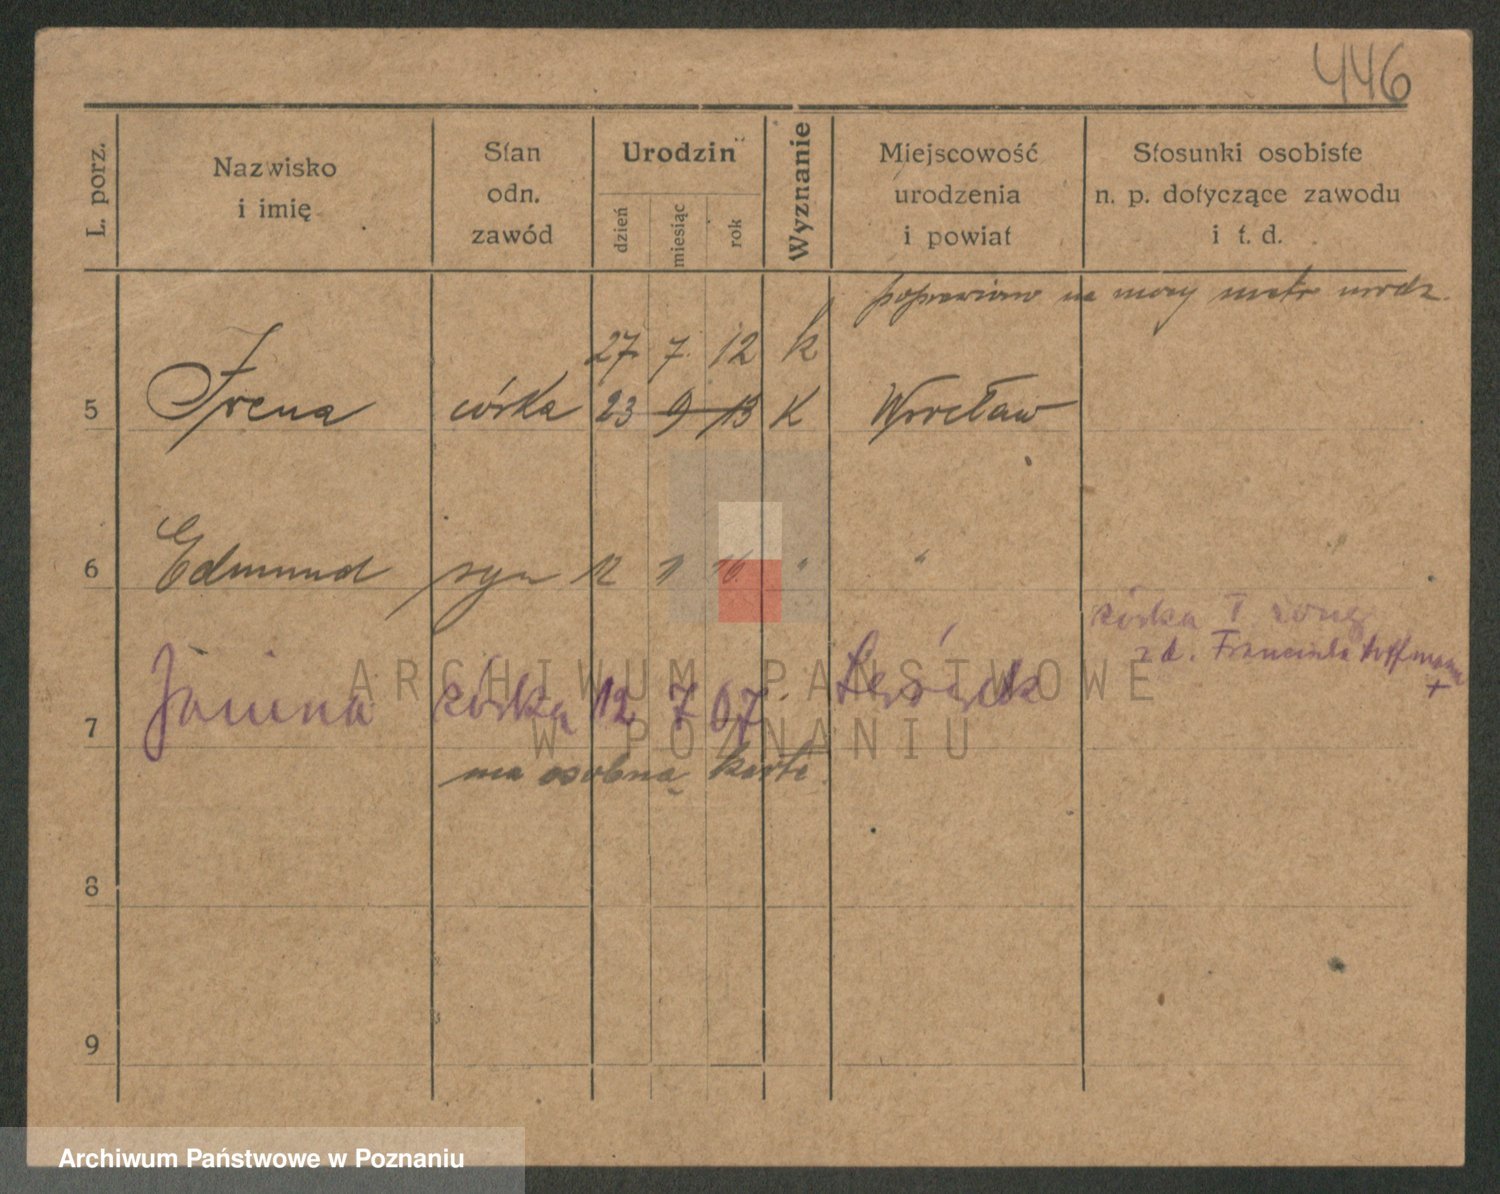 446
L. porz.
Nazwisko
i imię
Stan
odn.
zawód
Urodzin
dzień
miesiąc
rok
Wyznanie
Miejscowość
urodzenia
i powiat
Stosunki osobiste
n. p. dotyczące zawodu
i t. d.
poprawiono na mocy metr urodz.
27 7. 12 k
5 Irena córka 23 9 13 K Wrocław
6 Edmund syn 12 " "
córka I żony
z d. Franciszka Hoffmann
+
7 Janina córka 12 7 07
ma osobną kartę.
8
9
ARCHIWUM PAŃSTWOWE
W POZNANIU
Archiwum Państwowe w Poznaniu